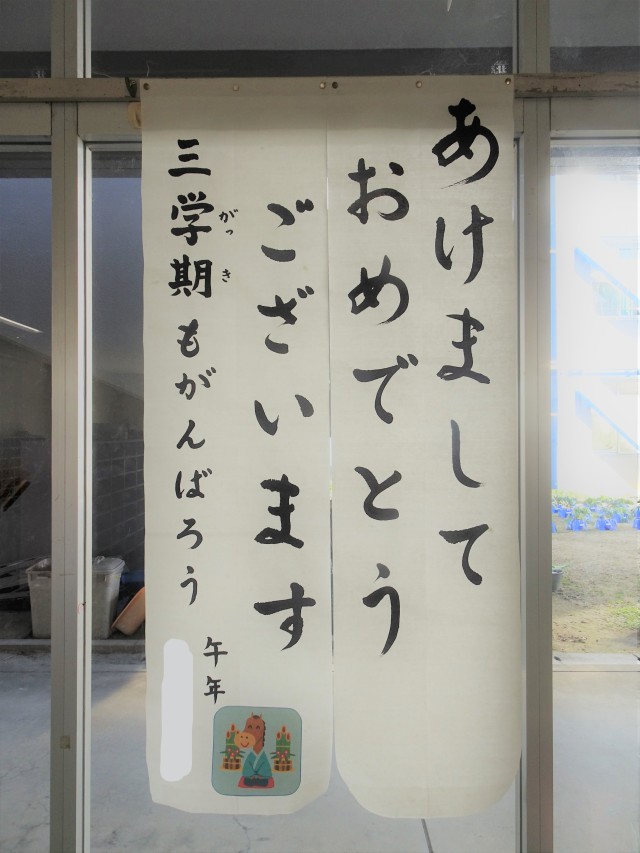 あけまして
おめでとう
ございます
三学期もがんばろう
がっき
午年